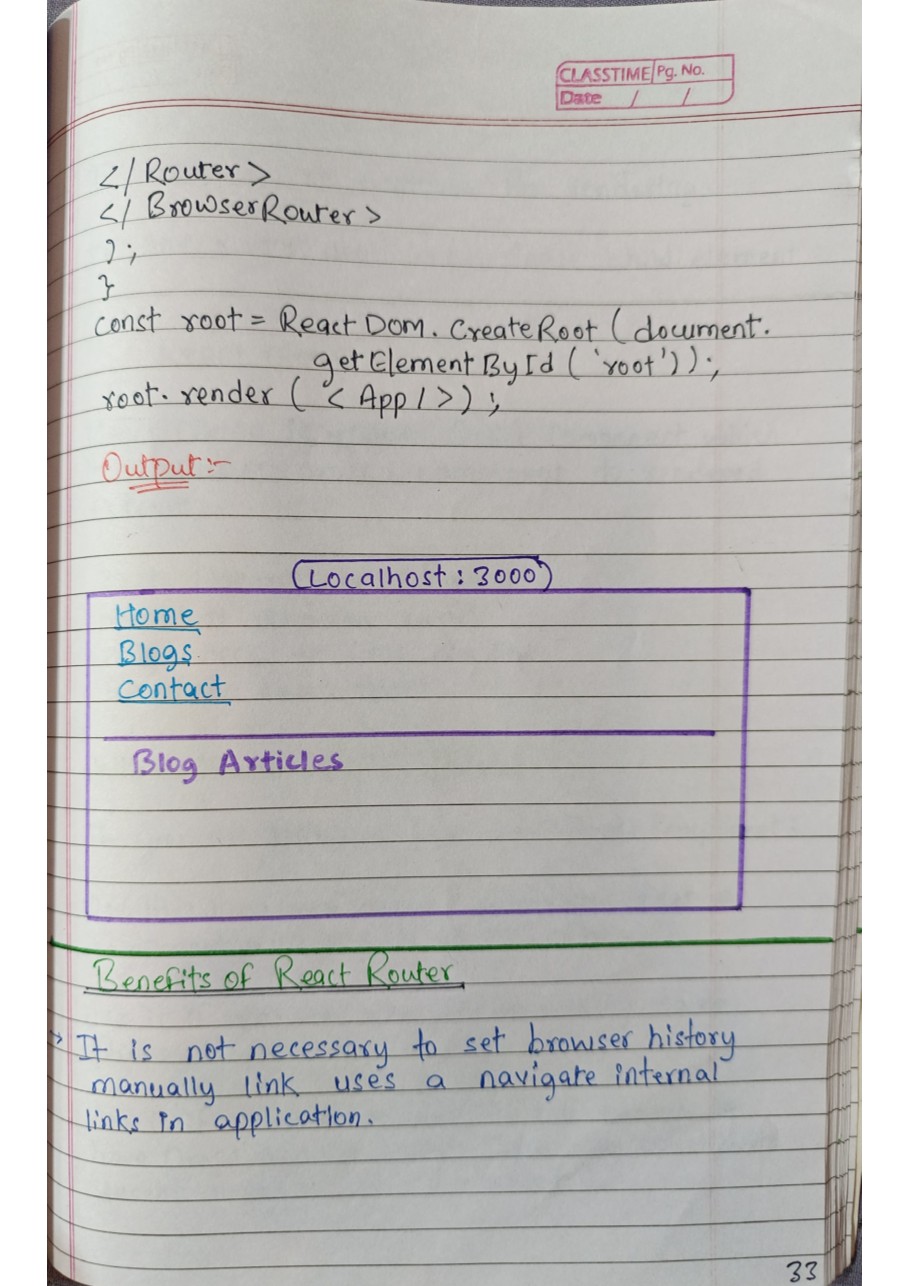 CLASSTIME Pg. No.
Date / /
</ Router>
</ BrowserRouter>
);
}
const root = React Dom. CreateRoot (document.
getElement By Id ('root'));
root. render ( < App / >);
Output :-
Localhost : 3000
Home
Blogs
Contact
Blog Articles
Benefits of React Router
→ It is not necessary to set browser history
manually link uses a navigate internal
links in application.
33